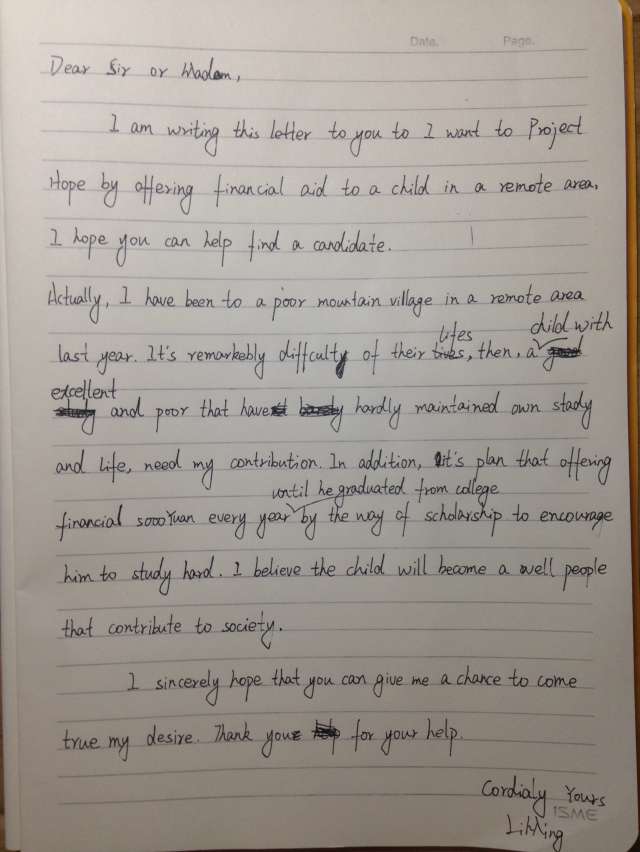 Date. Page.
Dear Sir or Madam,
I am writing this letter to you to I want to Project
Hope by offering financial aid to a child in a remote area.
I hope you can help find a candidate.
Actually, I have been to a poor mountain village in a remote area
lifes child with
last year. It's remarkebly difficulty of their lives, then, a good
excellent
study and poor that have hardly maintained own stady
and life, need my contribution. In addition, it's plan that offering
until he graduated from college
financial 5000Yuan every year by the way of scholarship to encourage
him to study hard. I believe the child will become a well people
that contribute to society.
I sincerely hope that you can give me a chance to come
true my desire. Thank you help for your help.
Cordialy Yours
ISME
LiMing